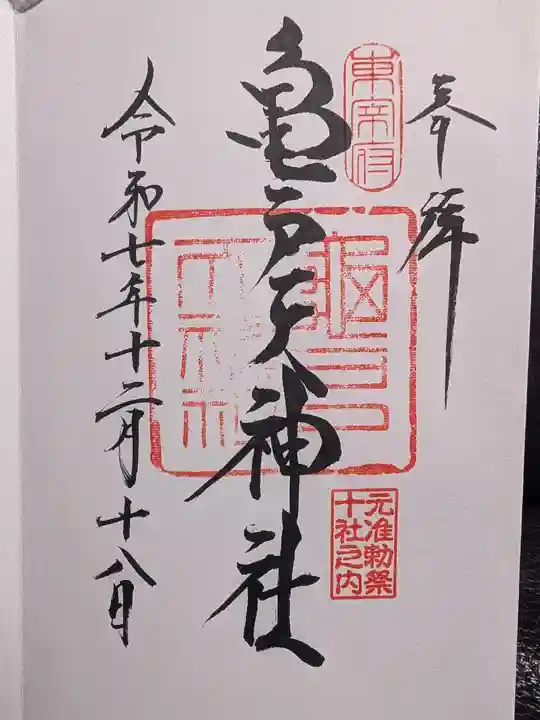 奉拝
東宰府
亀戸天神社
元准勅祭
十社之内
令和七年十二月十八日